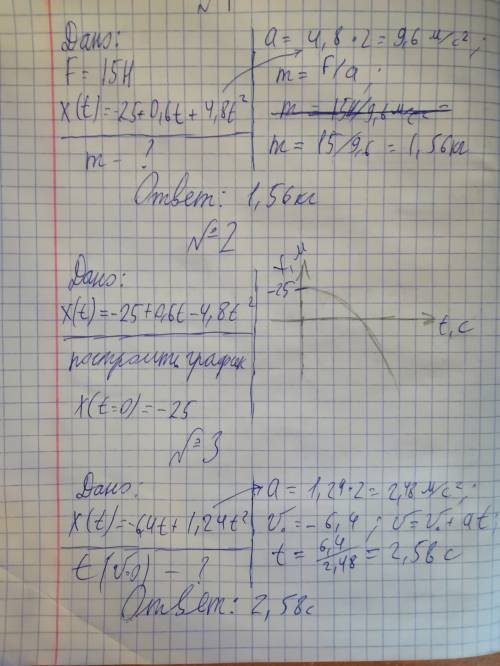 №1
Дано:
F = 15Н
x(t)=-25+0,6t+4,8t²
m - ?
a = 4,8·2=9,6 м/с²;
m = F/a;
m = 15Н/9,6 м/с² =
m = 15/9,6 = 1,56кг
Ответ: 1,56кг
№2
Дано:
x(t)=-25+0,6t-4,8t²
построить график
x(t=0)=-25
м
-25
t,с
№3
Дано:
x(t)=-6,4t+1,24t²
t(v=0) - ?
a = 1,24·2=2,48 м/с²;
v₀=-6,4; v=v₀+at;
t = 6,4/2,48 = 2,58 с
Ответ: 2,58с